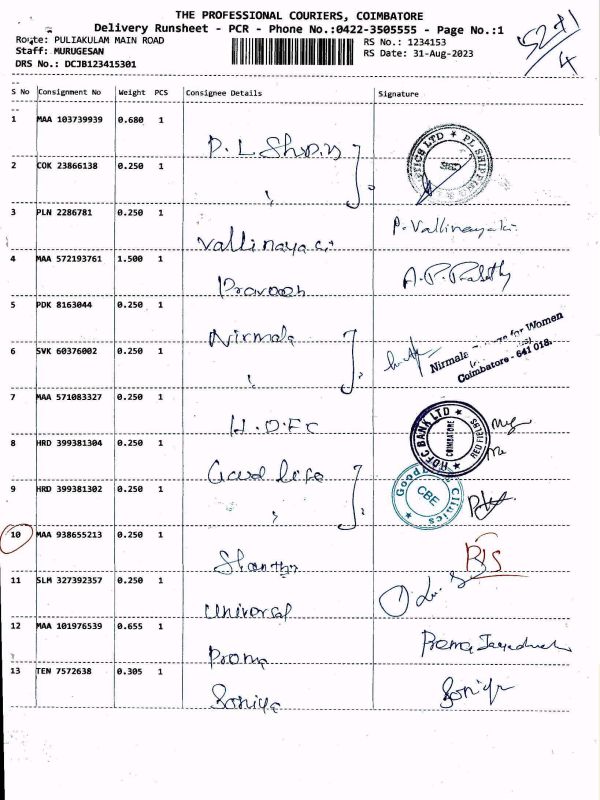 THE PROFESSIONAL COURIERS, COIMBATORE
Delivery Runsheet - PCR - Phone No.:0422-3505555 - Page No.:1
Route: PULIAKULAM MAIN ROAD
RS No.: 1234153
Staff: MURUGESAN
RS Date: 31-Aug-2023
DRS No.: DCJB123415301
S No Consignment No Weight PCS Consignee Details Signature
1 MAA 103739939 0.680 1
P. L Shipping
LTD ★ PL SHIPPING &
2 COK 23866138 0.250 1
"
3 PLN 2286781 0.250 1
Vallinayaki P. Vallinayaki
4 MAA 572193761 1.500 1
Praveen
5 PDK 8163044 0.250 1
Nirmala
Nirmala for Women
Coimbatore - 641 018.
6 SVK 60376002 0.250 1
"
7 MAA 571083327 0.250 1
H.D.F.C
HDFC BANK LTD ★ RED FIELDS
COIMBATORE
8 HRD 399381304 0.250 1
Good life
Clinics
CBE
9 HRD 399381302 0.250 1
"
10 MAA 938655213 0.250 1
Shanthi
11 SLM 327392357 0.250 1
Universal
12 MAA 101976539 0.655 1
Prema
13 TEN 7572638 0.305 1
Soniya Soniya